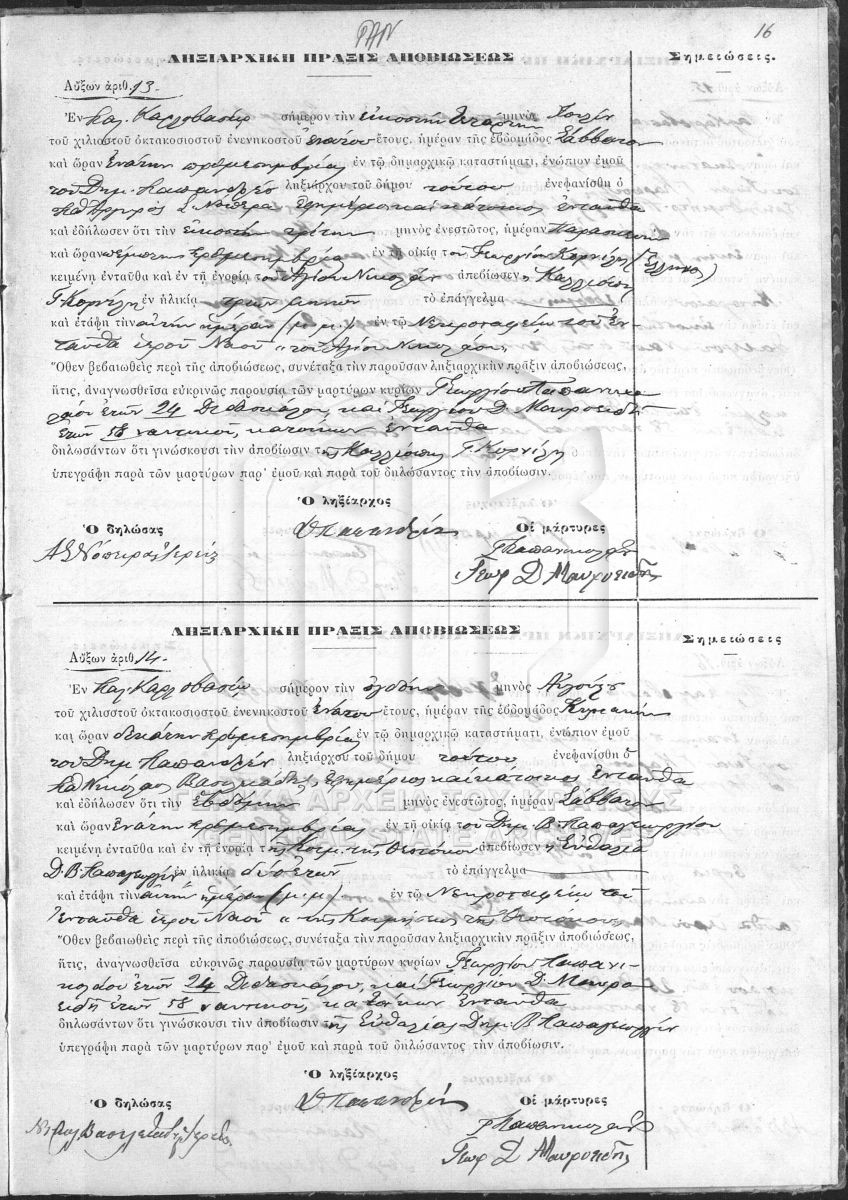 ΓΑΝ
16
ΛΗΞΙΑΡΧΙΚΗ ΠΡΑΞΙΣ ΑΠΟΒΙΩΣΕΩΣ
Σημειώσεις.
Αὔξων ἀριθ. 13.
Ἐν Καρλοβασίῳ σήμερον τὴν εἰκοστὴν τετάρτην μηνὸς Ἰουλίου
τοῦ χιλιοστοῦ ὀκτακοσιοστοῦ ἐνενηκοστοῦ ἐνάτου ἔτους, ἡμέραν τῆς ἑβδομάδος Σάββατον
καὶ ὥραν ἐνάτην πρ. μεσημβρίας ἐν τῷ δημαρχικῷ καταστήματι, ἐνώπιον ἐμοῦ
τοῦ Δημ. ληξιάρχου τοῦ δήμου τούτου ἐνεφανίσθη ὁ
ἐφημέριος καὶ κάτοικος ἐνταῦθα
καὶ ἐδήλωσεν ὅτι τὴν εἰκοστὴν τρίτην μηνὸς ἐνεστῶτος, ἡμέραν Παρασκευὴν
καὶ ὥραν πέμπτην πρ. μεσημβρίας ἐν τῇ οἰκίᾳ τοῦ Γεωργίου Κορνίλη (Ἕλληνος)
κειμένῃ ἐνταῦθα καὶ ἐν τῇ ἐνορίᾳ τοῦ Ἁγίου Νικολάου ἀπεβίωσεν ἡ Καλλιόπη
Γ. Κορνίλη ἐν ἡλικίᾳ τριῶν μηνῶν τὸ ἐπάγγελμα
καὶ ἐτάφη τὴν αὐτὴν ἡμέραν (μ.μ.) ἐν τῷ Νεκροταφείῳ τοῦ ἐν-
ταῦθα ἱεροῦ Ναοῦ „τοῦ Ἁγίου Νικολάου„
Ὅθεν βεβαιωθεὶς περὶ τῆς ἀποβιώσεως, συνέταξα τὴν παροῦσαν ληξιαρχικὴν πρᾶξιν ἀποβιώσεως,
ἥτις, ἀναγνωσθεῖσα εὐκρινῶς παρουσίᾳ τῶν μαρτύρων κυρίων Γεωργίου Παπανικο-
λάου ἐτῶν 24 Διδασκάλου, καὶ Γεωργίου Δ. Μαυροειδῆ
ἐτῶν 58 ναυτικοῦ, κατοίκων ἐνταῦθα
δηλωσάντων ὅτι γινώσκουσι τὴν ἀποβίωσιν τῆς Καλλιόπης Γ. Κορνίλη
ὑπεγράφη παρὰ τῶν μαρτύρων παρ' ἐμοῦ καὶ παρὰ τοῦ δηλώσαντος τὴν ἀποβίωσιν.
Ὁ ληξίαρχος
Ὁ δηλώσας
Οἱ μάρτυρες
Γ Παπανικολάου
Γεωρ Δ Μαυροειδῆς
ΛΗΞΙΑΡΧΙΚΗ ΠΡΑΞΙΣ ΑΠΟΒΙΩΣΕΩΣ
Σημειώσεις
Αὔξων ἀριθ. 14.
Ἐν Καρλοβασίῳ σήμερον τὴν ὀγδόην μηνὸς Αὐγούστου
τοῦ χιλιοστοῦ ὀκτακοσιοστοῦ ἐνενηκοστοῦ ἐνάτου ἔτους, ἡμέραν τῆς ἑβδομάδος Κυριακὴν
καὶ ὥραν δεκάτην πρ. μεσημβρίας ἐν τῷ δημαρχικῷ καταστήματι, ἐνώπιον ἐμοῦ
τοῦ Δημ. ληξιάρχου τοῦ δήμου τούτου ἐνεφανίσθη ὁ
Νικόλαος ἐφημέριος καὶ κάτοικος ἐνταῦθα
καὶ ἐδήλωσεν ὅτι τὴν ἑβδόμην μηνὸς ἐνεστῶτος, ἡμέραν Σάββατον
καὶ ὥραν ἐνάτην πρ. μεσημβρίας ἐν τῇ οἰκίᾳ τοῦ Δημ. Β. Παπαγεωργίου
κειμένῃ ἐνταῦθα καὶ ἐν τῇ ἐνορίᾳ τῆς Κοιμ. τῆς Θεοτόκου ἀπεβίωσεν ἡ Εὐθαλία
Δ. Β. Παπαγεωργίου ἐν ἡλικίᾳ δύο ἐτῶν τὸ ἐπάγγελμα
καὶ ἐτάφη τὴν αὐτὴν ἡμέραν (μ.μ.) ἐν τῷ Νεκροταφείῳ τοῦ
ἐνταῦθα ἱεροῦ Ναοῦ „τῆς Κοιμήσεως τῆς Θεοτόκου„
Ὅθεν βεβαιωθεὶς περὶ τῆς ἀποβιώσεως, συνέταξα τὴν παροῦσαν ληξιαρχικὴν πρᾶξιν ἀποβιώσεως,
ἥτις, ἀναγνωσθεῖσα εὐκρινῶς παρουσίᾳ τῶν μαρτύρων κυρίων Γεωργίου Παπανι-
κολάου ἐτῶν 24 Διδασκάλου, καὶ Γεωργίου Δ. Μαυρο-
ειδῆ ἐτῶν 58 ναυτικοῦ, κατοίκων ἐνταῦθα
δηλωσάντων ὅτι γινώσκουσι τὴν ἀποβίωσιν τῆς Εὐθαλίας Δημ. Β. Παπαγεωργίου
ὑπεγράφη παρὰ τῶν μαρτύρων παρ' ἐμοῦ καὶ παρὰ τοῦ δηλώσαντος τὴν ἀποβίωσιν.
Ὁ ληξίαρχος
Ὁ δηλώσας
Οἱ μάρτυρες
Γ Παπανικολάου
Γεωρ Δ Μαυροειδῆς